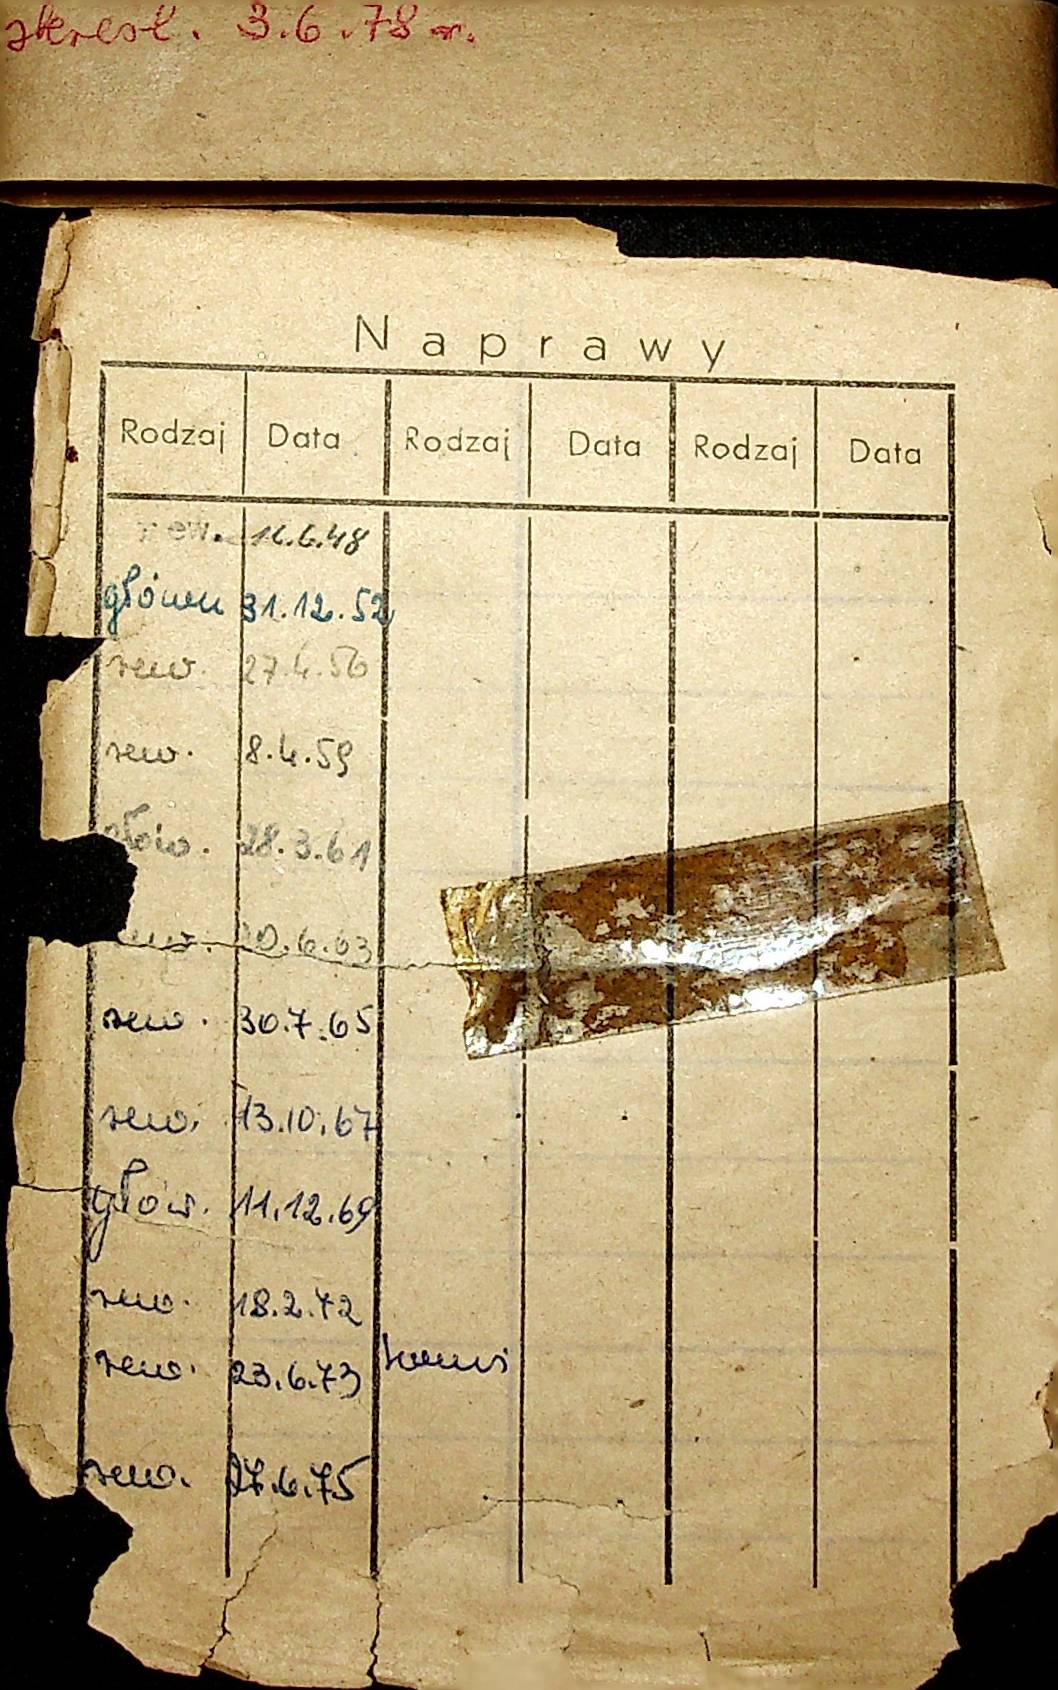 skreśl. 3.6.78 r.
Naprawy
Rodzaj Data Rodzaj Data Rodzaj Data
rew. 16.6.48
główn 31.12.52
rew. 27.4.56
rew. 8.4.59
głów. 28.3.61
30.7.65
rew. 30.7.65
rew. 13.10.67
głów. 11.12.69
rew. 18.2.72
rew. 23.6.73
rew. 27.6.75